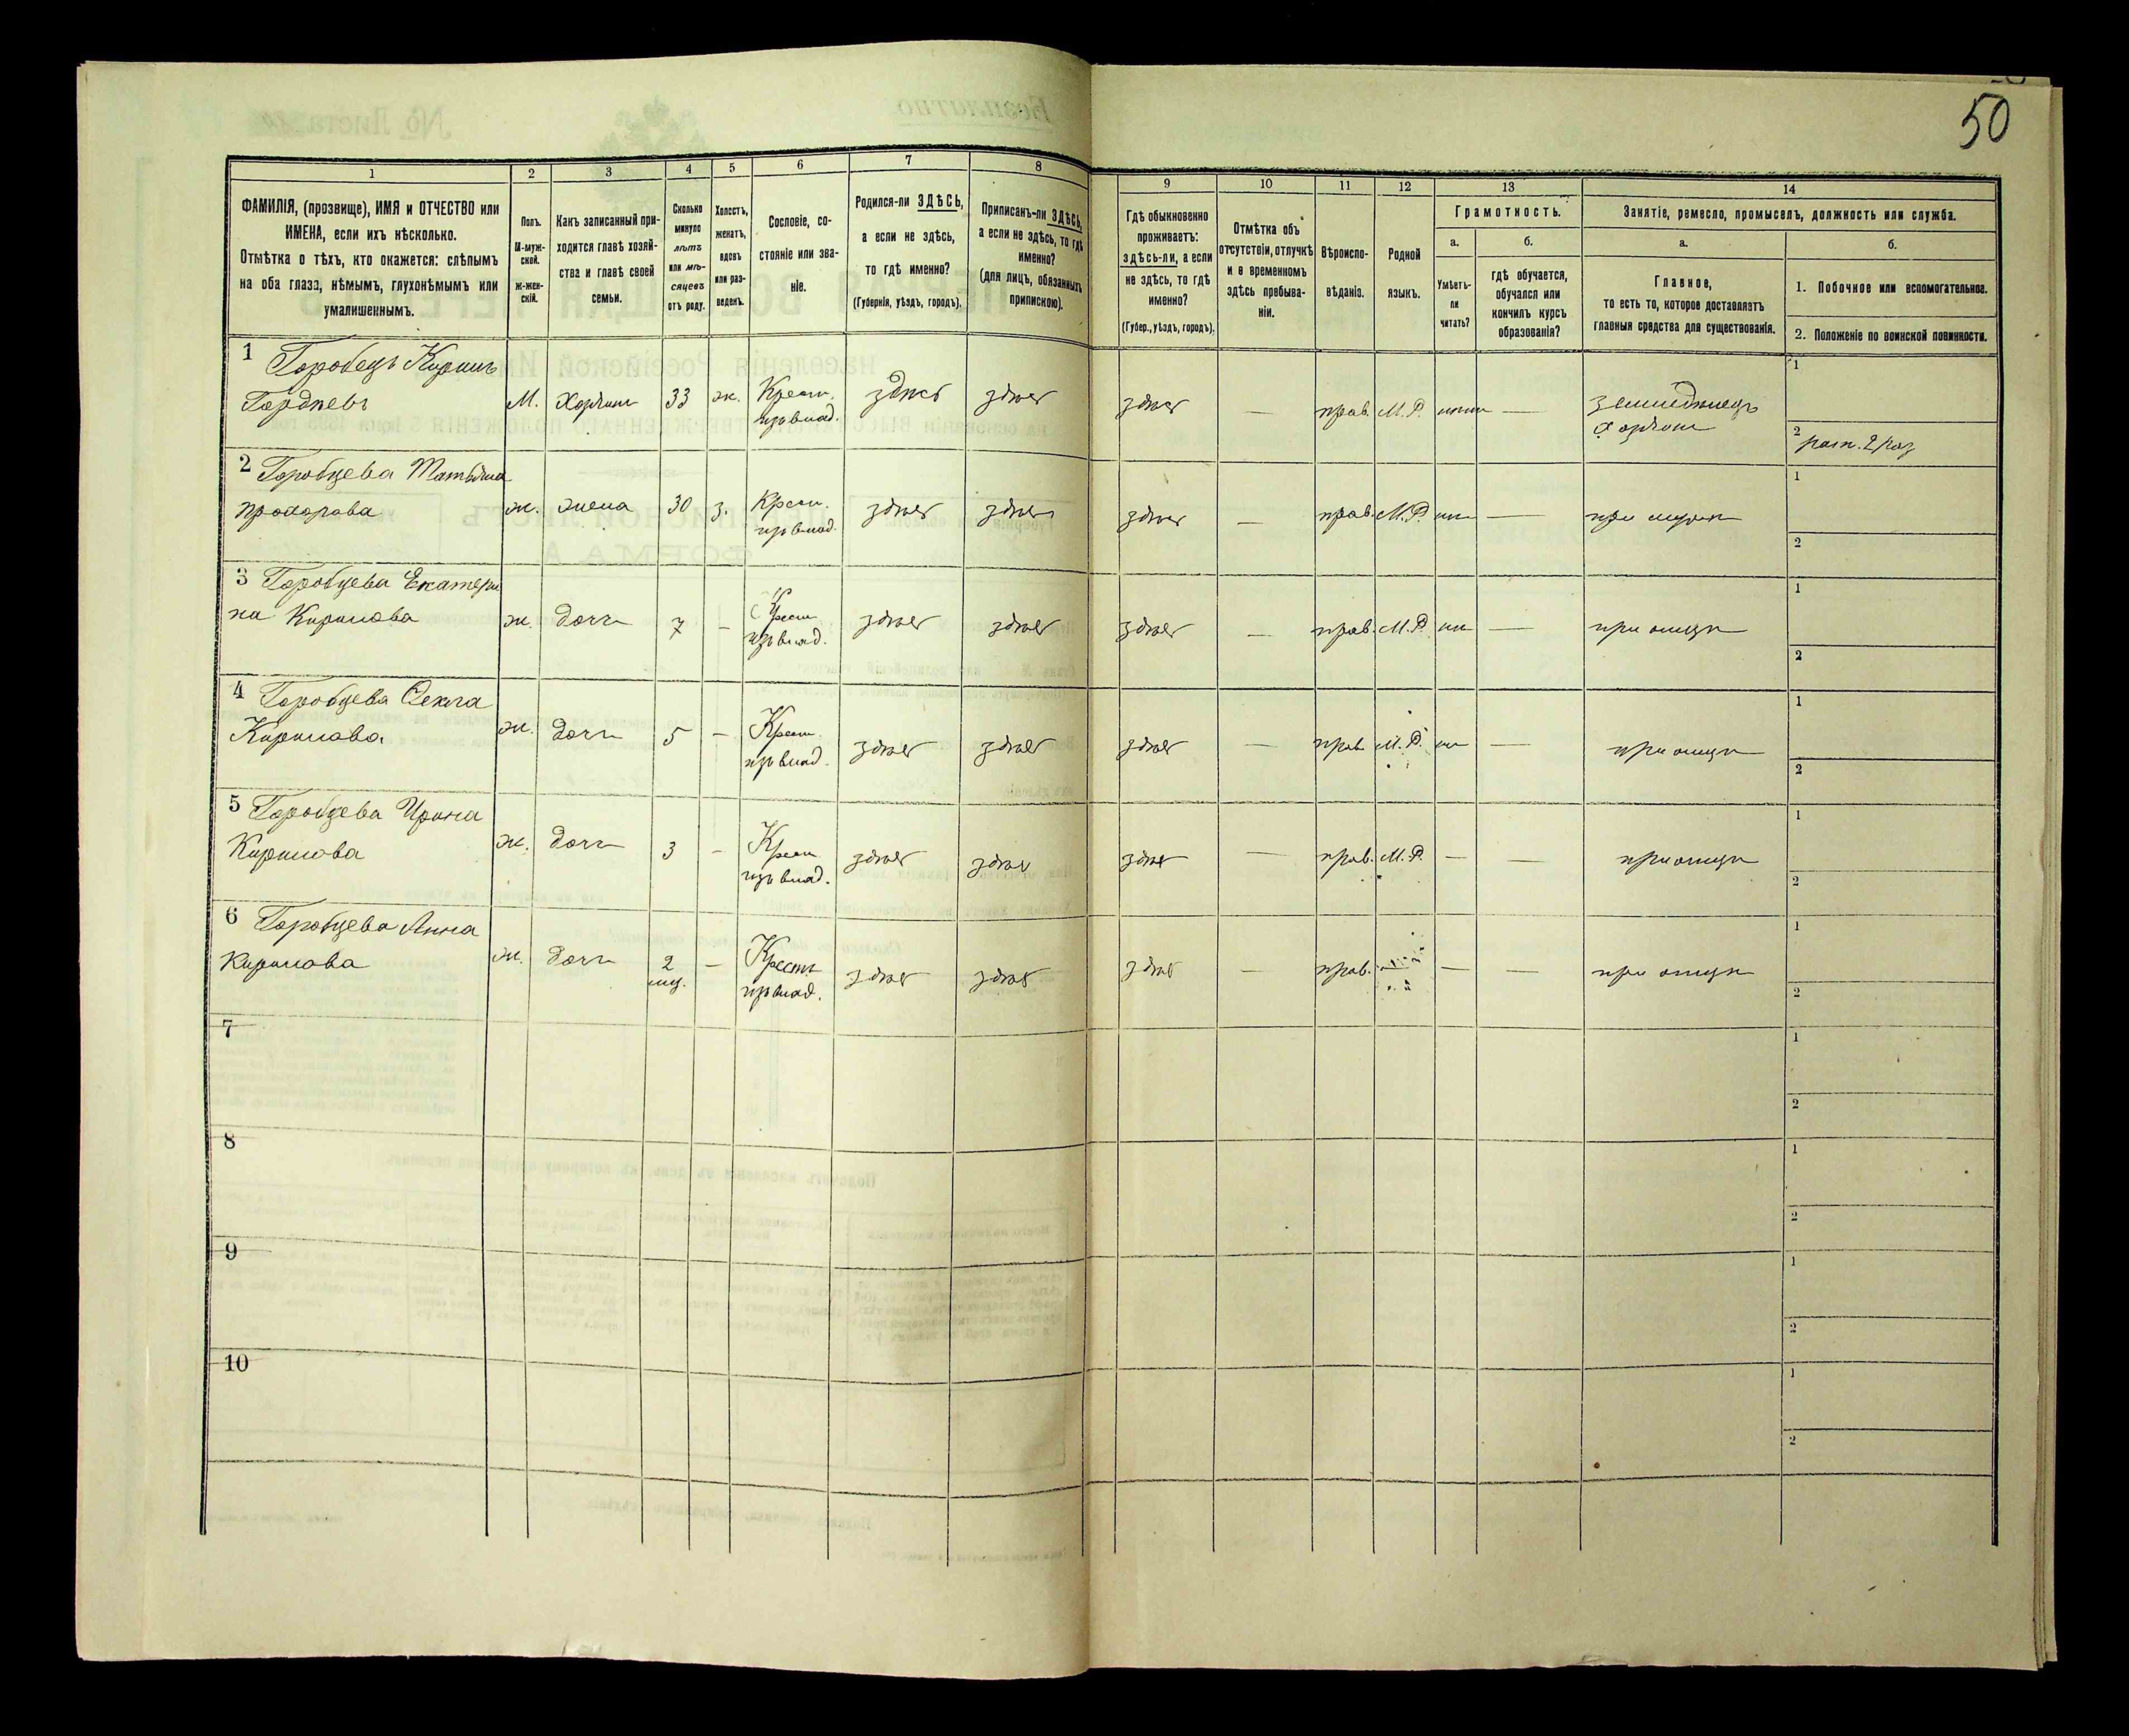 50
1
2
3
4
5
6
7
8
9
10
11
12
13
14
ФАМИЛІЯ, (прозвище), ИМЯ и ОТЧЕСТВО или
ИМЕНА, если ихъ нѣсколько.
Отмѣтка о тѣхъ, кто окажется: слѣпымъ
на оба глаза, нѣмымъ, глухонѣмымъ или
умалишеннымъ.
Полъ.
М-муж-
ской.
Ж-жен-
скій.
Какъ записанный при-
ходится главѣ хозяй-
ства и главѣ своей
семьи.
Сколько
минуло
лѣтъ
или мѣ-
сяцевъ
отъ роду.
Холостъ,
женатъ,
вдовъ
или раз-
веденъ.
Сословіе, со-
стояніе или зва-
ніе.
Родился-ли ЗДѢСЬ,
а если не здѣсь,
то гдѣ именно?
(Губернія, уѣздъ, городъ).
Приписанъ-ли ЗДѢСЬ,
а если не здѣсь, то гдѣ
именно?
(для лицъ, обязанныхъ
припискою).
Гдѣ обыкновенно
проживаетъ:
здѣсь-ли, а если
не здѣсь, то гдѣ
именно?
(Губер., уѣздъ, городъ).
Отмѣтка объ
отсутствіи, отлучкѣ
и о временномъ
здѣсь пребыва-
ніи.
Вѣроиспо-
вѣданіе.
Родной
языкъ.
Грамотность.
а.
Умѣетъ-
ли
читать?
б.
гдѣ обучается,
обучался или
кончилъ курсъ
образованія?
Занятіе, ремесло, промыселъ, должность или служба.
а.
Главное,
то есть то, которое доставляетъ
главныя средства для существованія.
б.
1. Побочное или вспомогательное.
2. Положеніе по воинской повинности.
1 Горобецъ Кирилъ
Гордѣевъ
М. 33 ж. Крест. изъ влад. здѣсь здѣсь здѣсь — прав. М.Р. — земледѣлецъ
1
2
2 Горобцева Татьяна
Прохорова
ж. жена 30 з. Крест. изъ влад. здѣсь здѣсь здѣсь — прав. М.Р. —
1
2
3 Горобцева Екатери
на Кирилова
ж. дочь 7 — Крест. изъ влад. здѣсь здѣсь здѣсь — прав. М.Р. — при отцѣ
1
2
4 Горобцева Ѳекла
Кирилова
ж. дочь 5 — Крест. изъ влад. здѣсь здѣсь здѣсь — прав. М.Р. — при отцѣ
1
2
5 Горобцева Ирина
Кирилова
ж. дочь 3 — Крест. изъ влад. здѣсь здѣсь здѣсь — прав. М.Р. — — при отцѣ
1
2
6 Горобцева Анна
Кирилова
ж. дочь 2 мц. — Крест. изъ влад. здѣсь здѣсь здѣсь — прав. — — при отцѣ
1
2
7
1
2
8
1
2
9
1
2
10
1
2